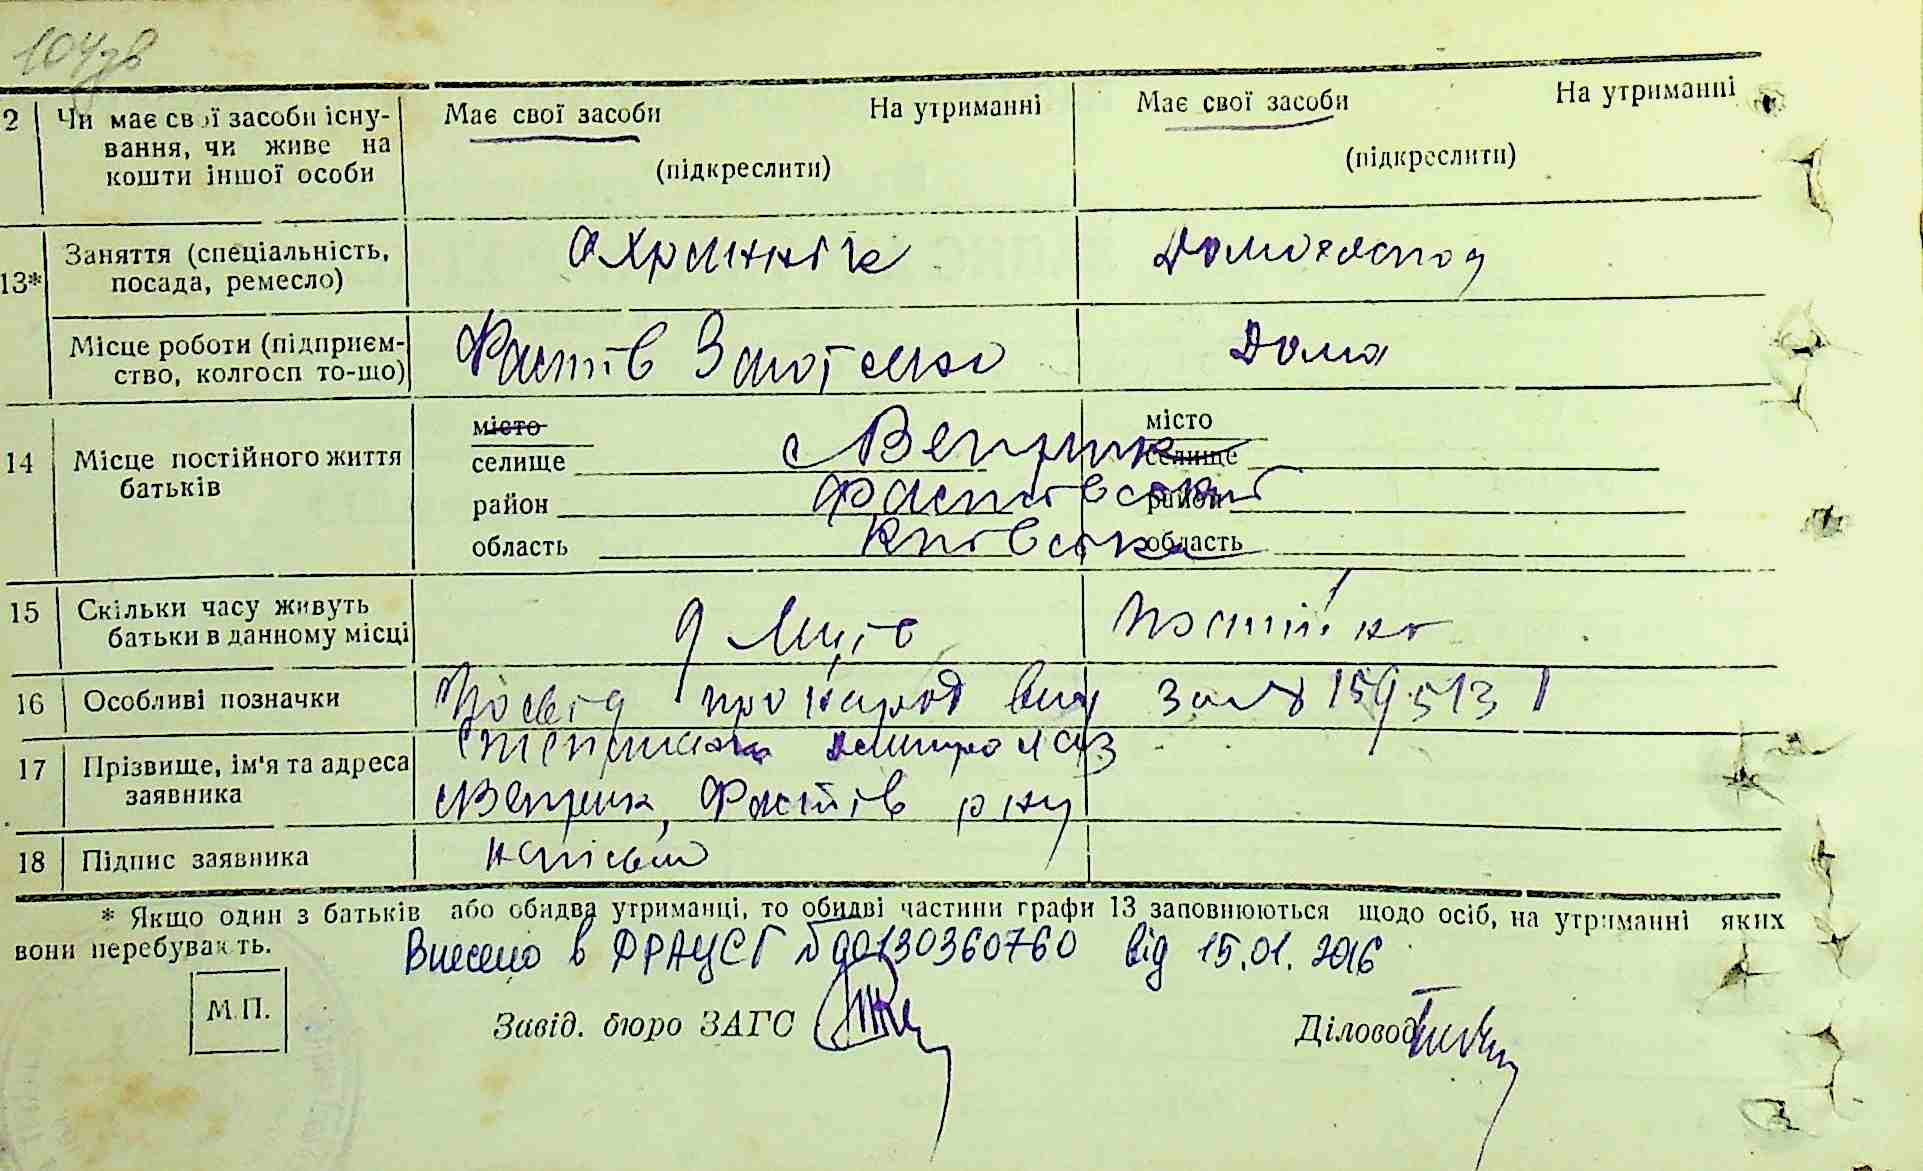 104зв
2 Чи має свої засоби існу- Має свої засоби На утриманні Має свої засоби На утриманні
вання, чи живе на
кошти іншої особи (підкреслити) (підкреслити)
13* Заняття (спеціальність, Охраннік Домогоспод
посада, ремесло)
Місце роботи (підприєм- Фастів Заготзерно Дома
ство, колгосп то-що)
14 Місце постійного життя місто с Веприк місто
батьків селище селище
район Фастівський район
область Київська область
15 Скільки часу живуть 9 Місців Постійно
батьки в данному місці
16 Особливі позначки Посвід про народ вид за № 159513
17 Прізвище, ім'я та адреса
заявника с Веприк, Фастів р ну
18 Підпис заявника
* Якщо один з батьків або обидва утриманці, то обидві частини графи 13 заповнюються щодо осіб, на утриманні яких
вони перебувають.
Внесено в ДРАЦСГ № 00130360760 від 15.01.2016
М.П. Завід. бюро ЗАГС Діловод